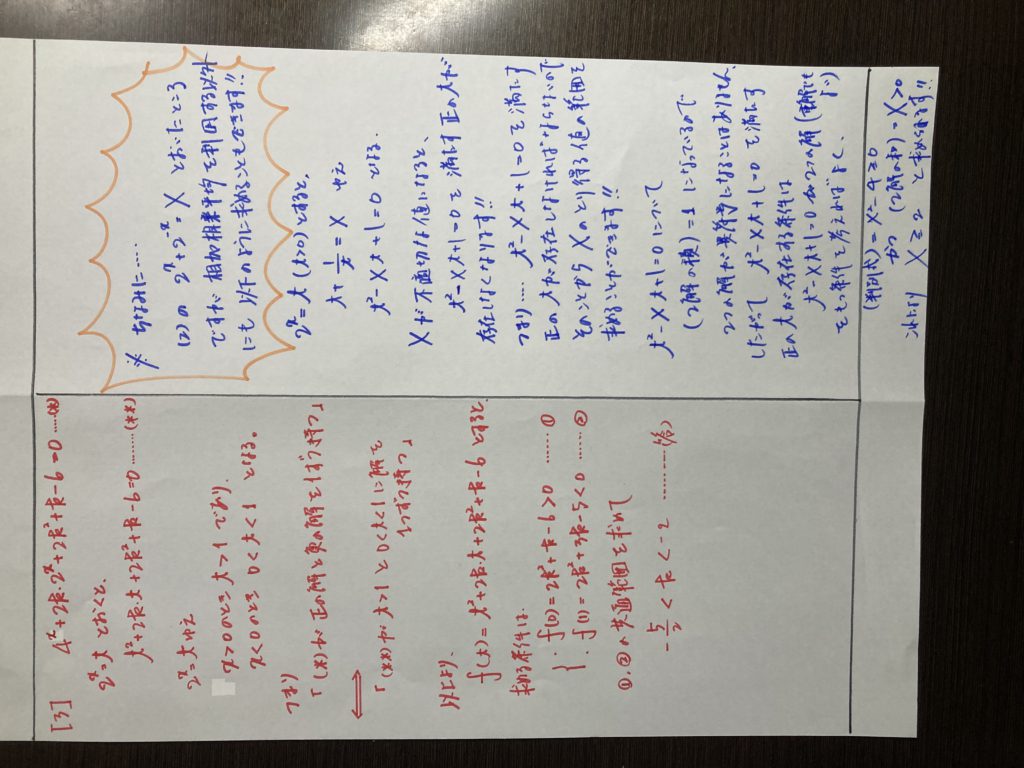 [3] 4^x+2k・2^x+2k²+k-6=0 ……(*)
2^x=t とおくと、
t²+2k・t+2k²+k-6=0 ……(**)
2^x=t ゆえ
x>0のとき t>1 であり、
x<0のとき 0<t<1 となる。
つまり
「(*)が 正の解と負の解を1つずつ持つ」
⟺
「(**)が t>1と0<t<1に解を
1つずつ持つ」
以上より、
f(t)=t²+2k・t+2k²+k-6 とすると、
求める条件は、
{ ・f(0)=2k²+k-6>0 ……①
・f(1)=2k²+3k-5<0 ……②
①、②の共通範囲を求めて
-5/2<k<-2 ………(答)
※ ちなみに……
(2)の 2^x+2^-x=X とおいたところ
ですが 相加相乗平均を利用する以外
にも 以下のように求めることもできます!!
2^x=t (t>0)とすると、
t+1/t=X ゆえ
t²-Xt+1=0 となる。
Xが不適切な値になると、
t²-Xt+1=0を満たす正のtが
存在しなくなります!!
つまり…… t²-Xt+1=0を満たす
正のtが存在しなければならないので
そのことから Xのとり得る値の範囲を
求めることができます!!
t²-Xt+1=0について
(2解の積)=1になっているので
2つの解が異符号になることはありません。
したがって t²-Xt+1=0を満たす
正のtが存在する条件は
t²-Xt+1=0が2つの解(重解も
をもつ条件を考えればよく、
(判別式)=X²-4≧0
かつ (2解の和)=X>0
これより X≧2 と求められます!!